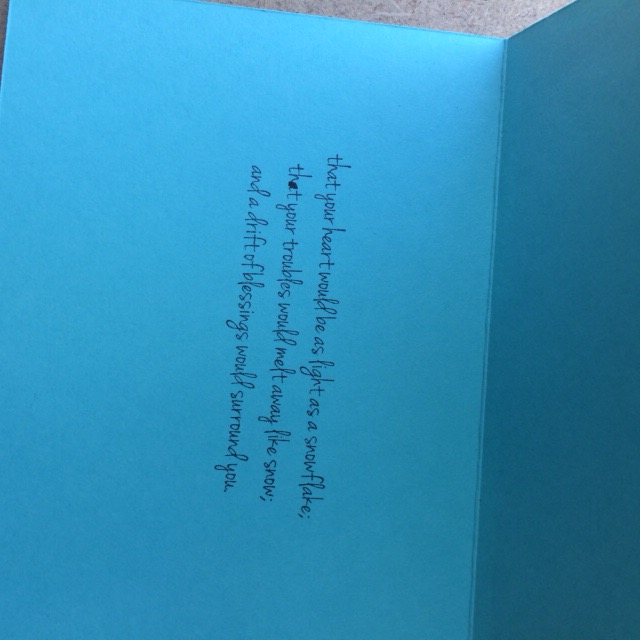 that your heart would be as light as a snowflake;
that your troubles would melt away like snow;
and a drift of blessings would surround you.